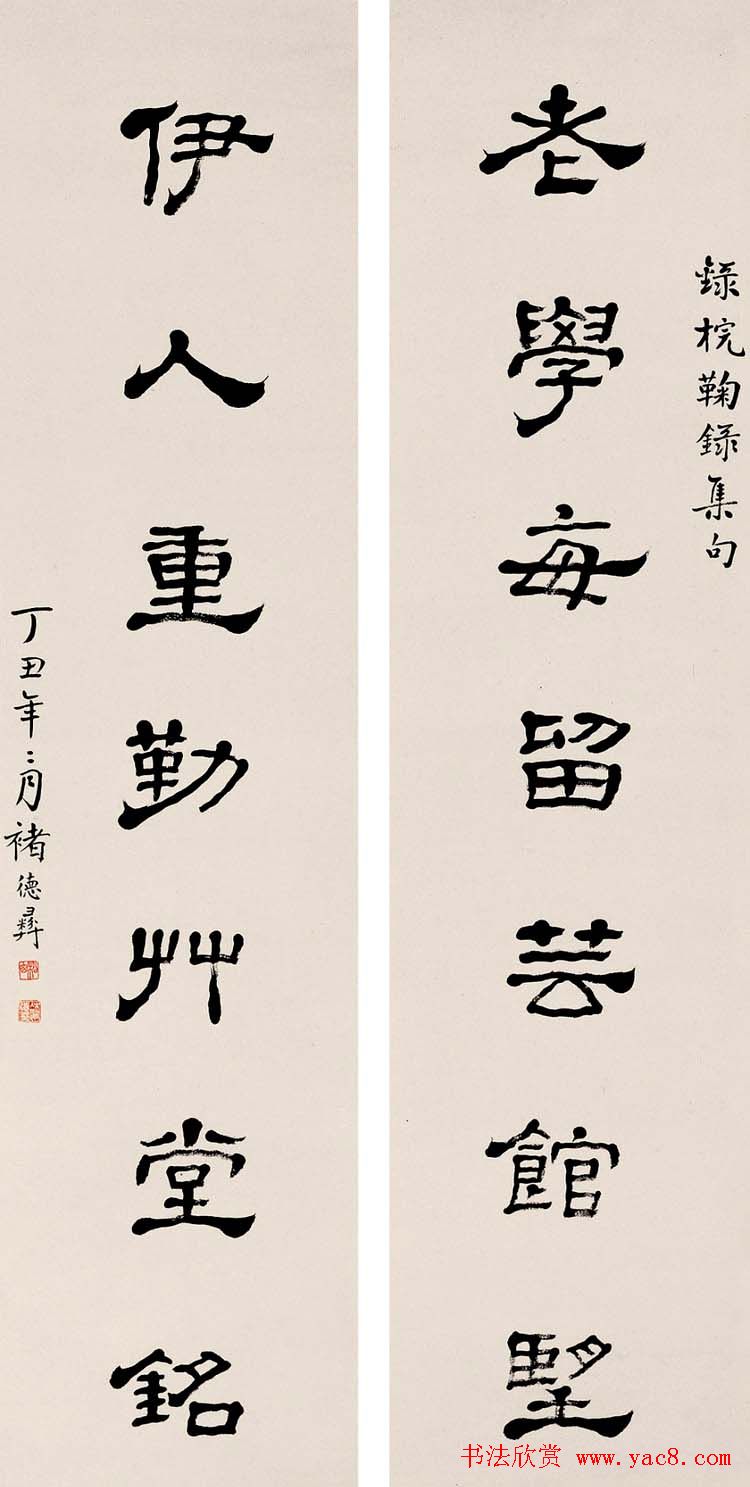 錄梡鞠錄集句
老學每留芸館朢
伊人重勒艸堂銘
丁丑年二月褚德彝
书法欣赏 www.yac8.com